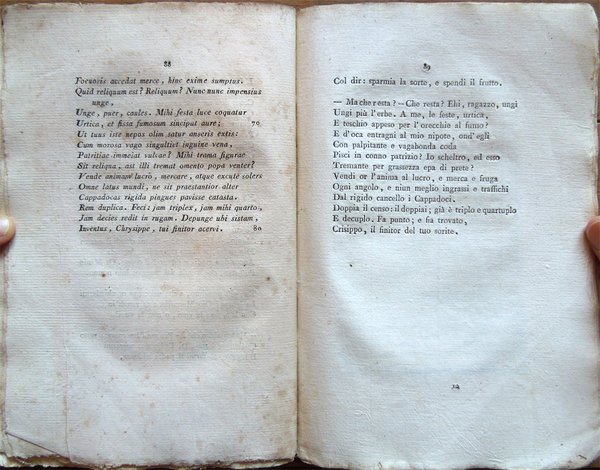 88
Foenoris accedat merce, hinc exime sumptus.
Quid reliquum est? Reliquum? Nunc nunc impensius
unge,
Unge, puer, caules. Mihi festa luce coquatur
Urtica, et fissa fumosum sinciput aure; 70
Ut tuus iste nepos olim satur anseris extis:
Cum morosa vago singultiet inguine vena,
Patritiae immeiat vulvae? Mihi trama figurae
Sit reliqua, ast illi tremat omento popa venter?
Vende animam lucro, mercare, atque excute solers
Omne latus mundi, ne sit praestantior alter
Cappadocas rigida pingues pavisse catasta.
Rem duplica. Feci: jam triplex, jam mihi quarto,
Jam decies redit in rugam. Depunge ubi sistam,
Inventus, Chrysippe, tui finitor acervi. 80
89
Col dir: sparmia la sorte, e spendi il frutto.
— Ma che resta? – Che resta? Ehi, ragazzo, ungi
Ungi più l'erbe. A me, le feste, urtica,
E teschio appeso per l'orecchie al fumo?
E d'oca entragni al mio nipote, ond'egli
Con palpitante e vagabonda coda
Pisci in conno patrizio? Io scheltro, ed esso
Tremante per grassezza epa di prete?
Vendi or l'anima al lucro, e merca e fruga
Ogni angolo, e niun meglio ingrassi e traffichi
Dal rigido cancello i Cappadoci.
Doppia il censo: il doppiai; già è triplo e quartuplo
E decuplo. Fa punto; e fia trovato,
Crisippo, il finitor del tuo sorite.
12